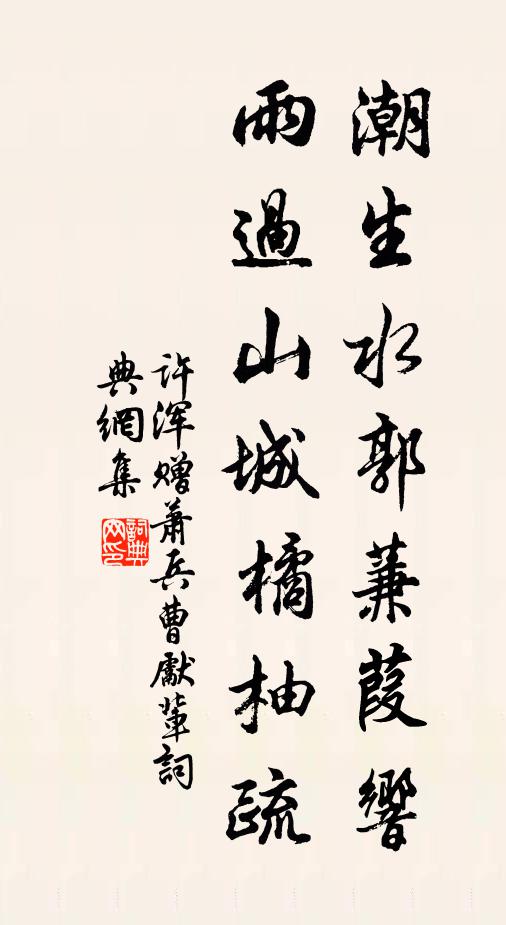 潮生水郭蒹葭響
雨過山城橘柚疏
許渾贈蕭兵曹獻輩詞
典網集
詞典網印